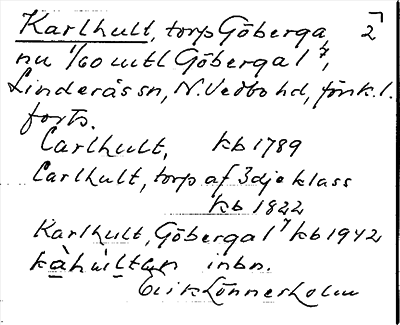 Karlhult, torp Göberga 2
nu 1/60 mtl Göberga 1⁷,
Linderås sn, N. Vedbo hd, Jönk. l.
forts.
Carlhult, kb 1789
Carlhult, torp af 3dje klass
kb 1822
Karlhult, Göberga 1⁷ kb 1942
inbn.
Erik Lönnerholm